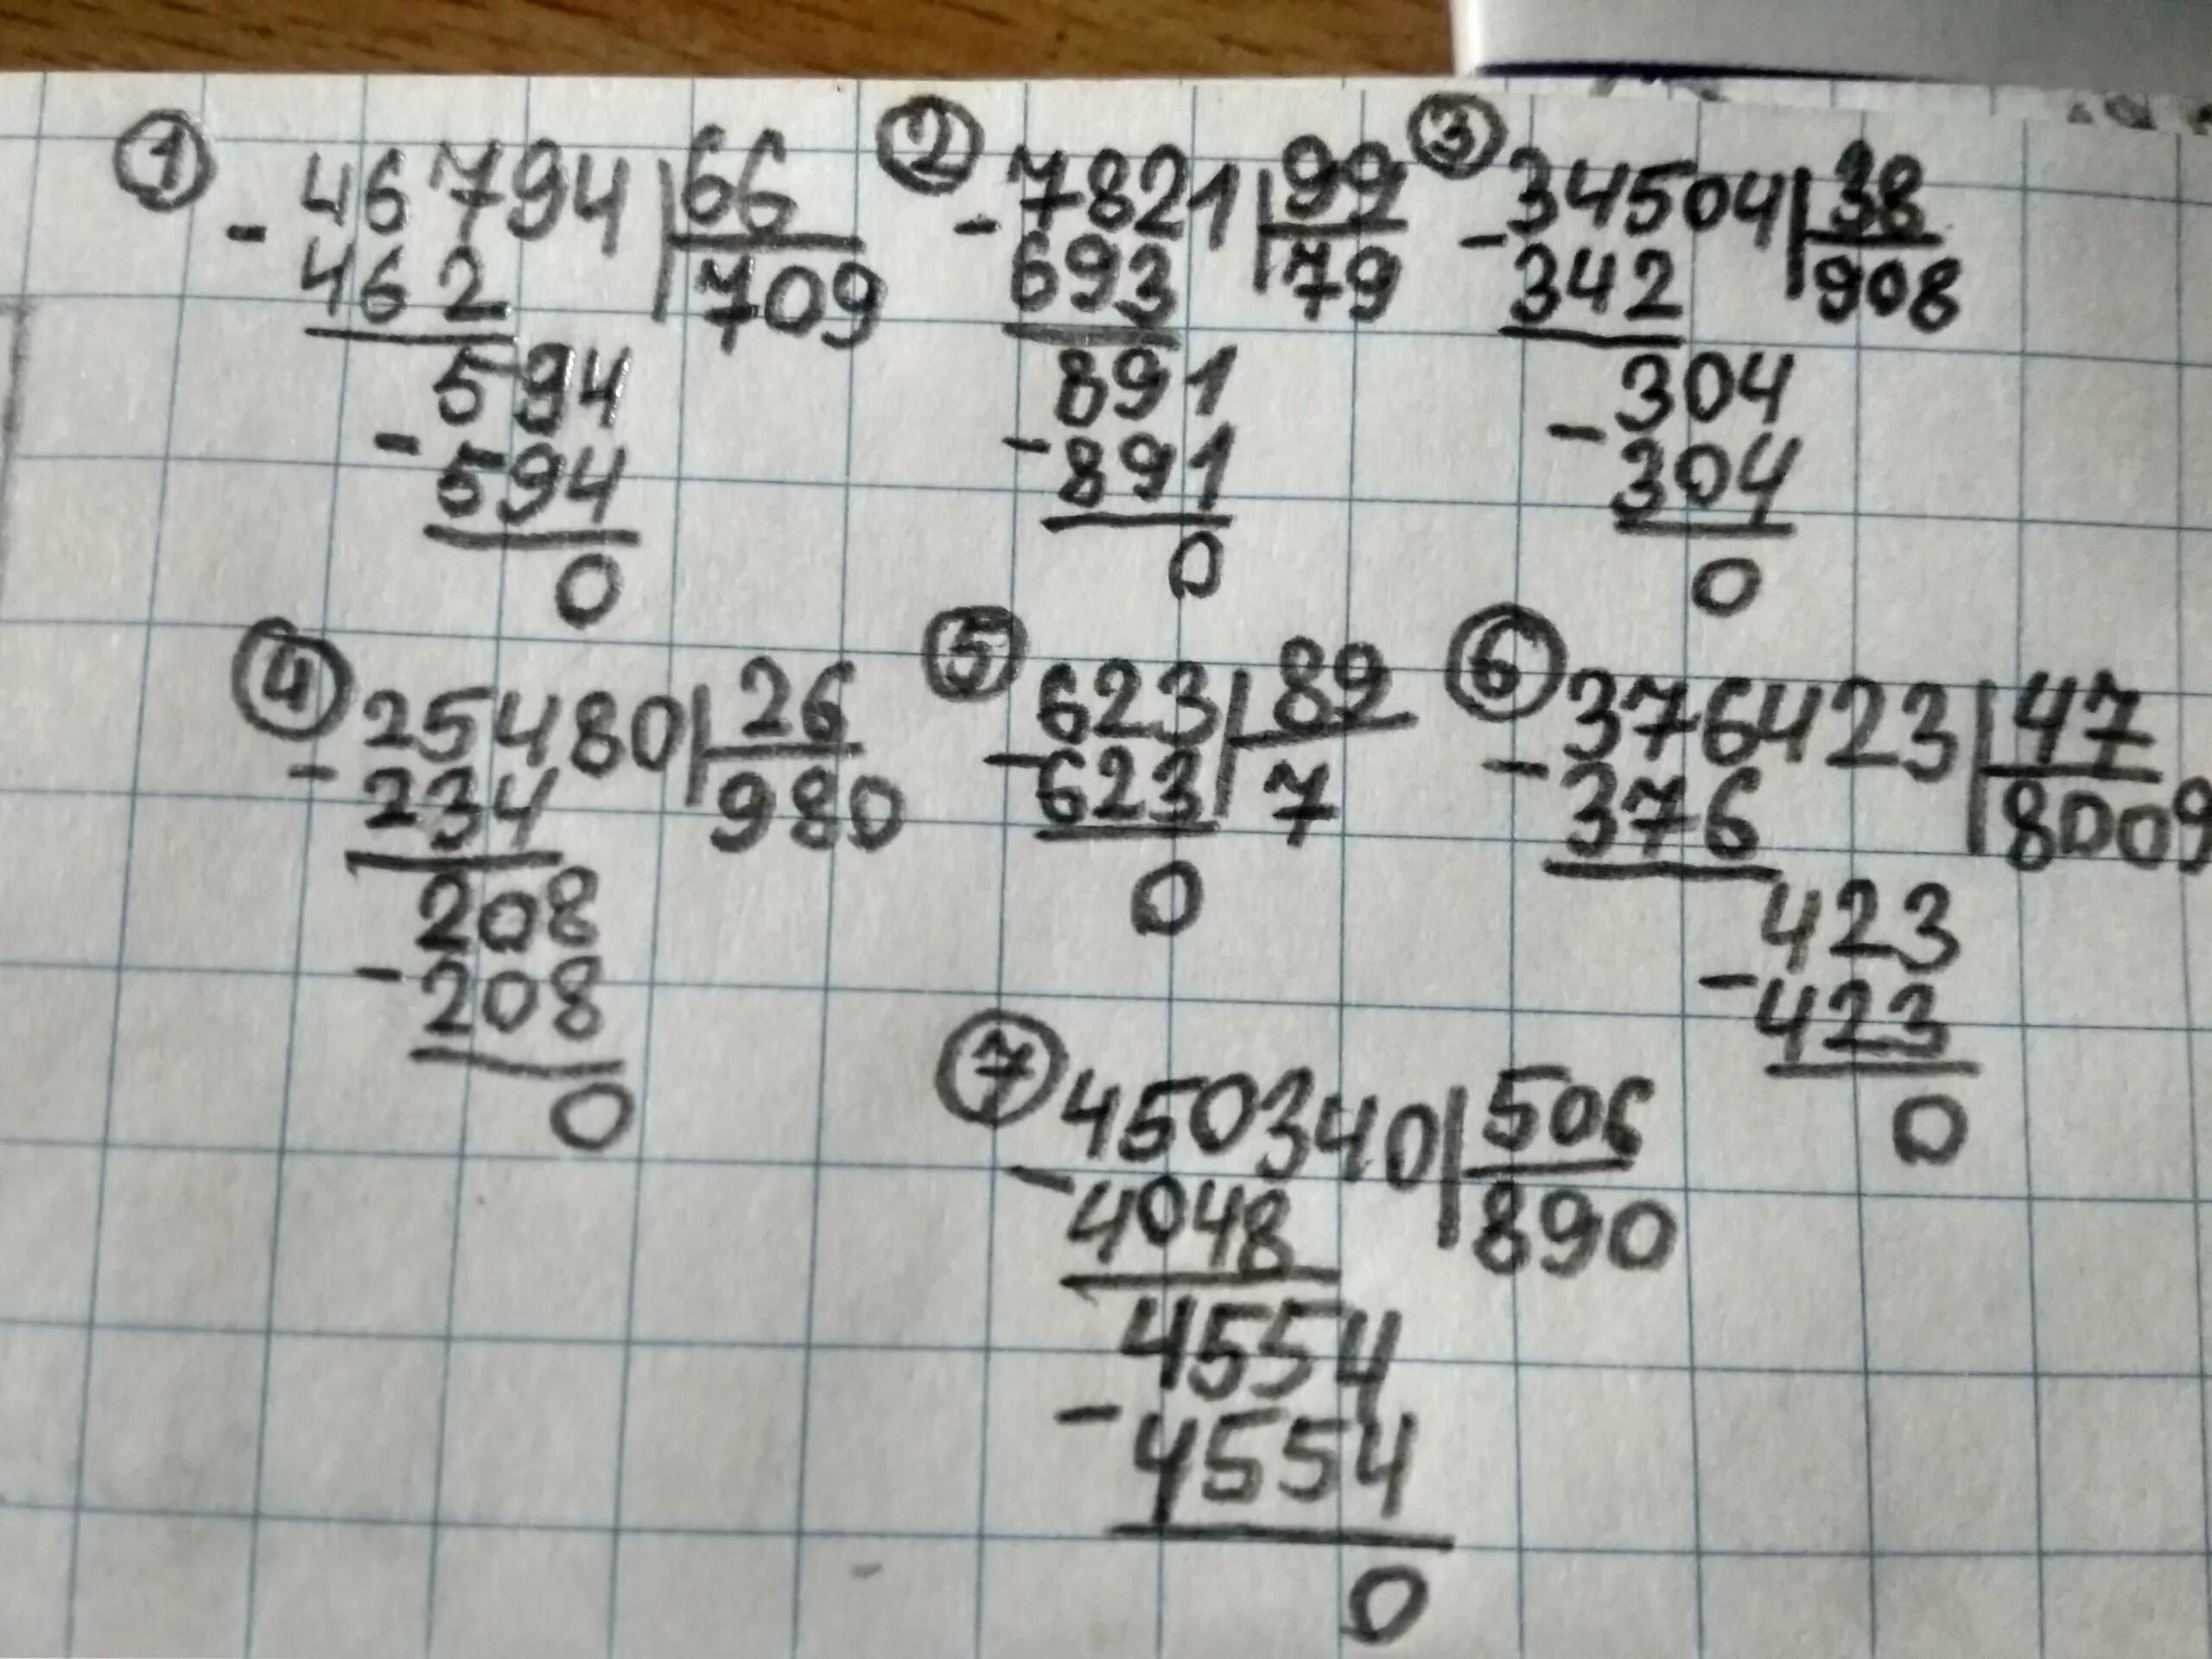 ① 46794 | 66
- 462 | 709
594
- 594
0
② 7821 | 99
- 693 | 79
891
- 891
0
③ 34504 | 38
- 342 | 908
304
- 304
0
④ 25480 | 26
- 234 | 980
208
- 208
0
⑤ 623 | 89
- 623 | 7
0
⑥ 376423 | 47
- 376 | 8009
423
- 423
0
⑦ 450340 | 506
- 4048 | 890
4554
- 4554
0